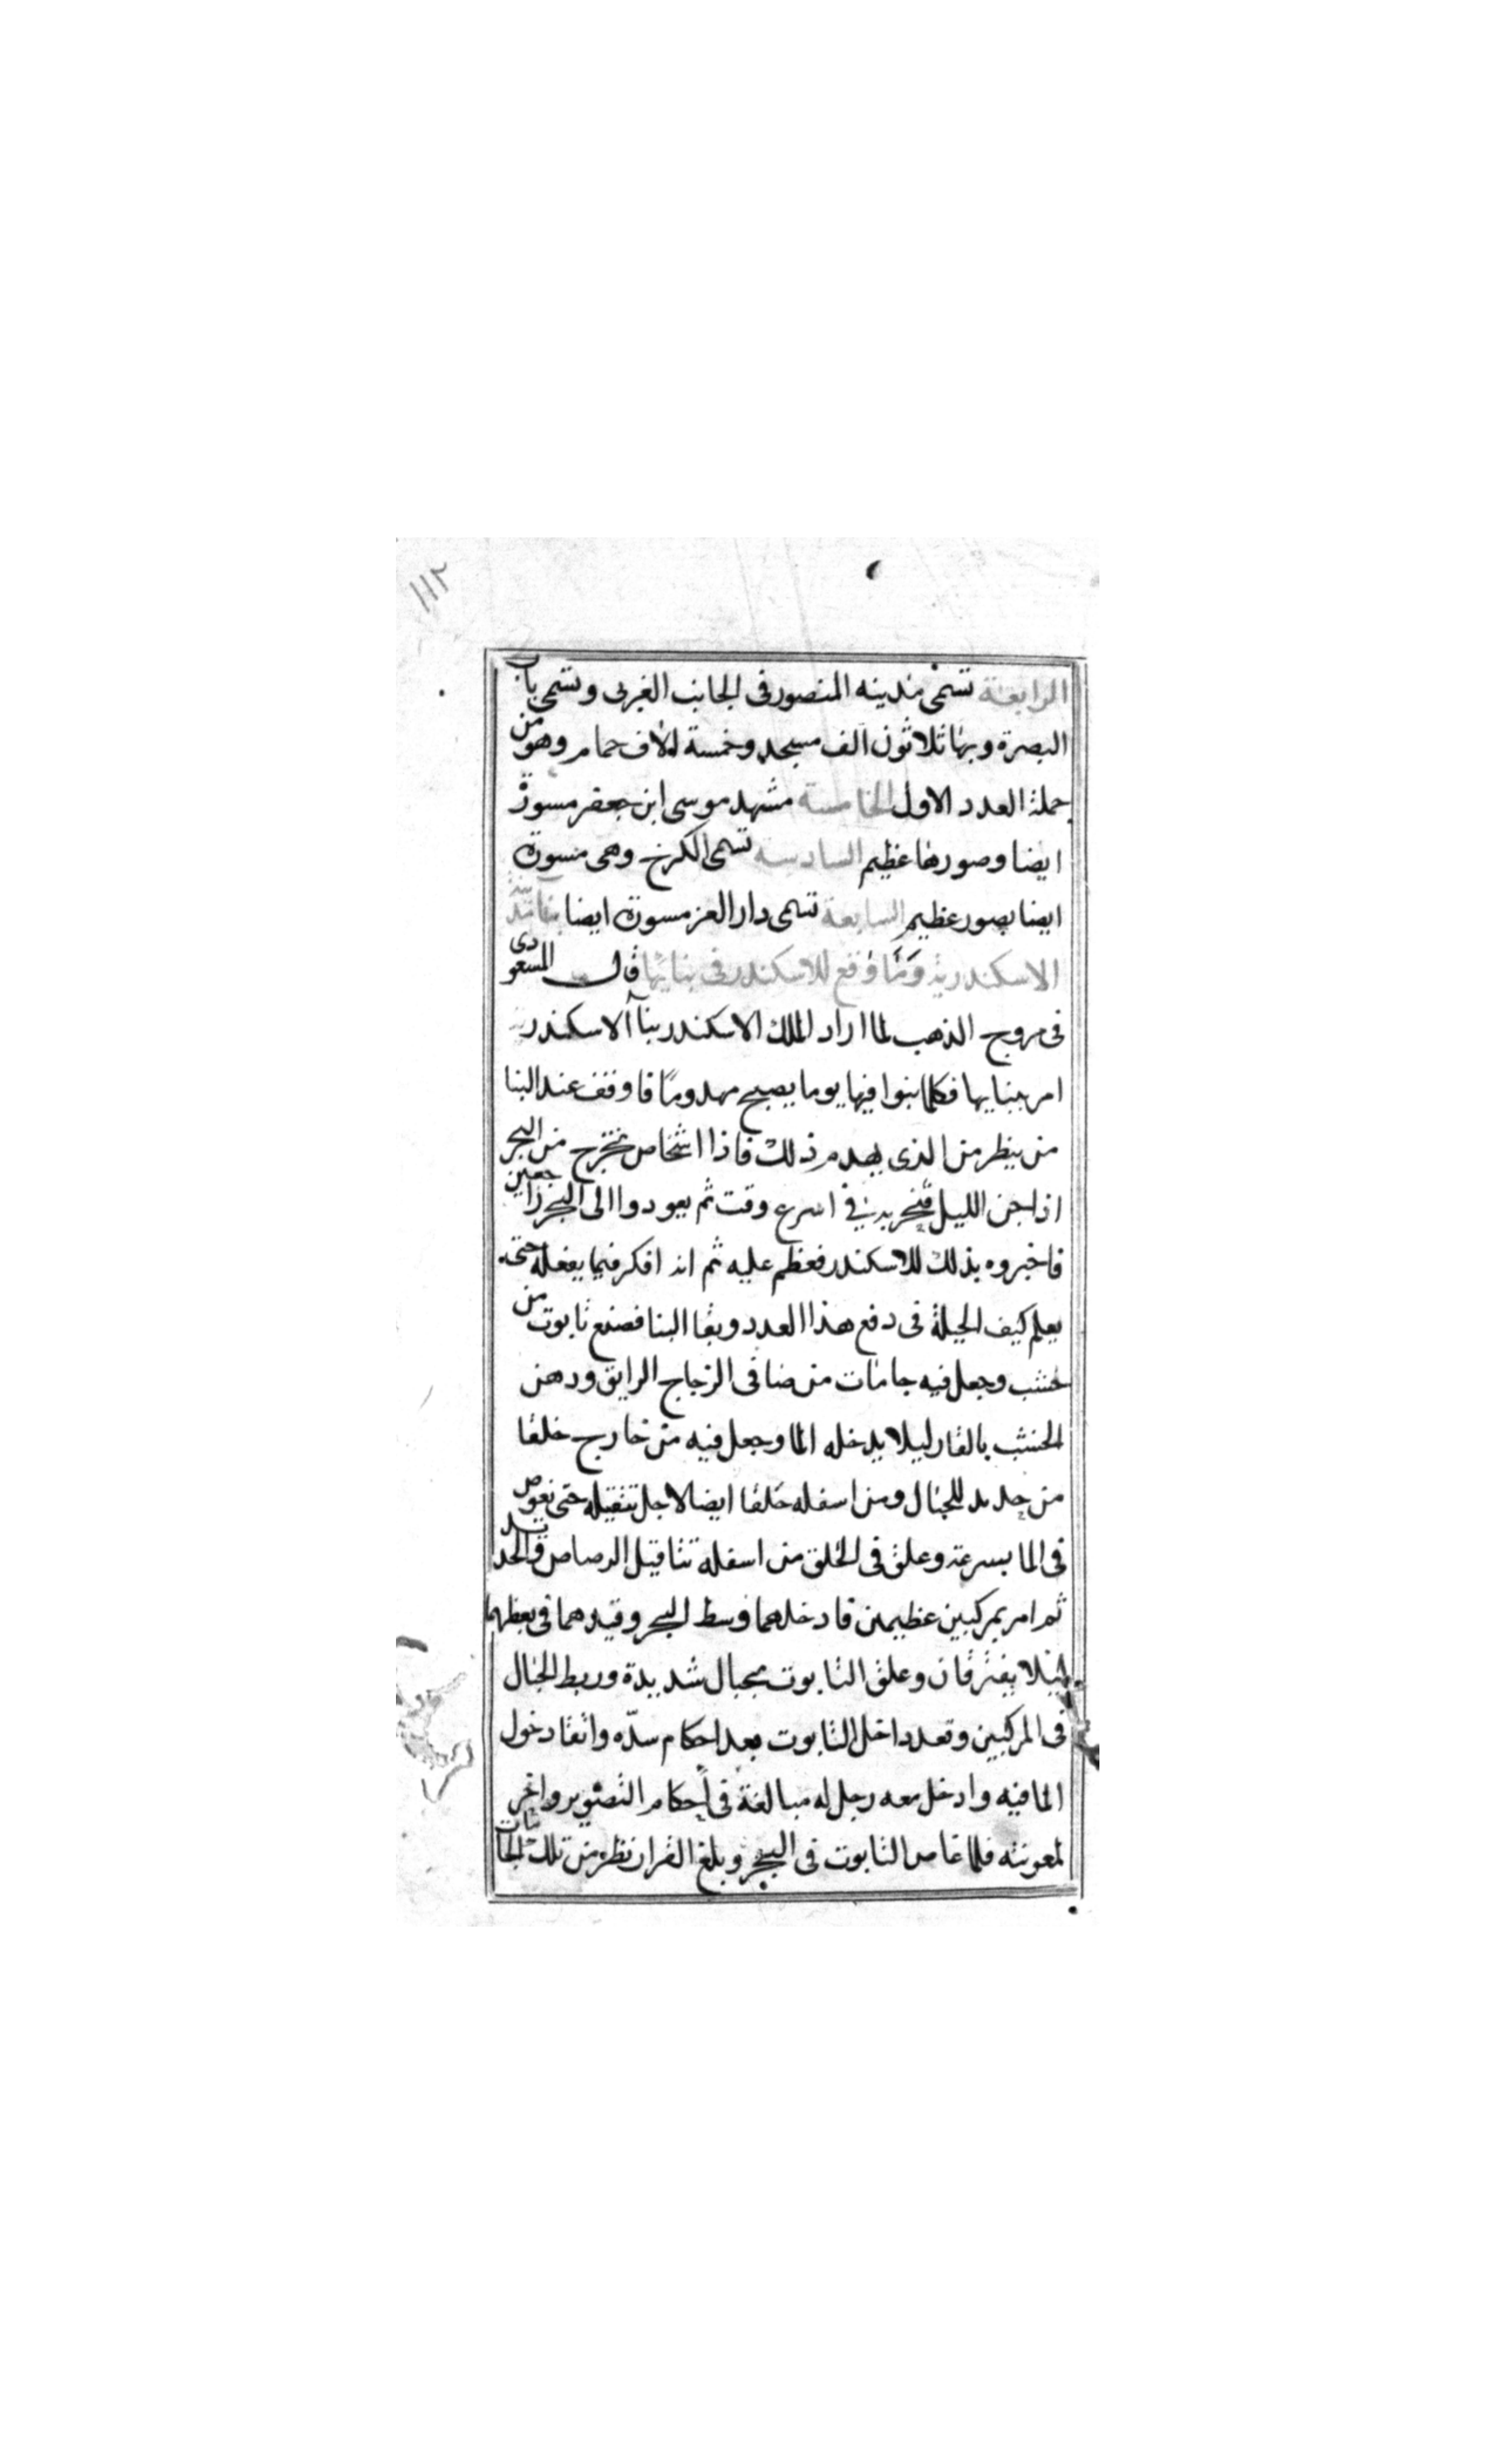 ١١٢
الرابعة تسمى مدينه المنصور فى الجانب الغربى وتسمى باب
البصرة وبها ثلاثون الف مسجد وخمسة الاف حمام وهو من
جملة العدد الاول الخامسة مشهد موسى ابن جعفر مسورة
ايضا وصورها عظيم السادسة تسمى الكرخ وهى مسورة
ايضا بصور عظيم السابعة تسمى دار العز مسورة ايضا
الاسكندرية وما وقع للاسكندر فى بنايها قال المسعودى
فى مروج الذهب لما اراد الملك الاسكندر بنآ الاسكندرية
امر ببنايها فكلما بنوا فيها يوما يصبح مهدوما فاوقف عند البنا
من ينظر من الذى يهدم ذلك فاذا اشخاص تخرج من البحر
اذا جن الليل فتخربه فى اسرع وقت ثم يعودوا الى البحر راجعين
فاخبروه بذلك للاسكندر فعظم عليه ثم انه افكر فيما يفعله حتى
يعلم كيف الحيلة فى دفع هذا العدد وبقا البنا فصنع تابوت من
خشب وجعل فيه جامات من صافى الزجاج الرايق ودهن
الخشب بالقار ليلا يدخله الما وجعل فيه من خارج حلقا
من حديد للحبال ومن اسفله حلقا ايضا لاجل تثقيله حتى يغوص
فى الما بسرعة وعلق فى الحلق من اسفله تثاقيل الرصاص والحديد
ثم امر بمركبين عظيمين فادخلهما وسط البحر وقيدهما فى بعظهما
ليلا يفترقان وعلق التابوت بحبال شديدة وربط الحبال
فى المركبين وقعد داخل التابوت بعد احكام سدّه واتقا دخول
الما فيه وادخل معه رجل له مبالغة فى احكام التصوير واخر
لمعونته فلما غاص التابوت فى البحر وبلغ القرار نظر من تلك الجامات